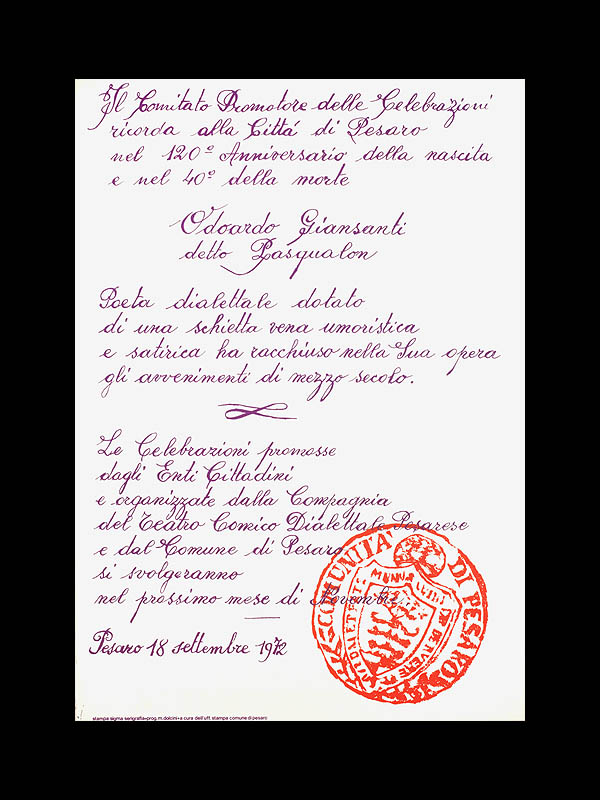 Il Comitato Promotore delle Celebrazioni
ricorda alla Cittá di Pesaro
nel 120º Anniversario della nascita
e nel 40º della morte
Odoardo Giansanti
detto Pasqualon
Poeta dialettale dotato
di una schietta vena umoristica
e satirica ha racchiuso nella Sua opera
gli avvenimenti di mezzo secolo.
Le Celebrazioni promosse
dagli Enti Cittadini
e organizzate dalla Compagnia
del Teatro Comico Dialettale Pesarese
e dal Comune di Pesaro
si svolgeranno
nel prossimo mese di Novembre
Pesaro 18 settembre 1972
COMUNITA' DI PESARO
stampa sigma serigrafia•prog.m.dolcini•a cura dell'uff. stampa comune di pesaro